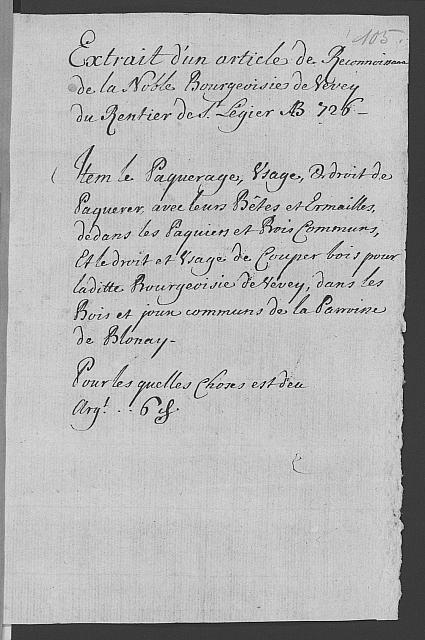 105.
Extrait d'un article de Reconnoissance
de la Noble Bourgeoisie de Vevey
du Rentier de St. Légier AB 726 -
Item le Paquerage, Usage, & droit de
Paquerer, avec leurs Bêtes et Ermailles,
dedans les Paquiers et Bois Communs,
Et le droit et Usage de Couper bois pour
laditte Bourgeoisie de Vevey, dans les
Bois et joux communs de la Parroisse
de Blonay -
Pour les quelles Choses est deu
Argt. .. 6 ß